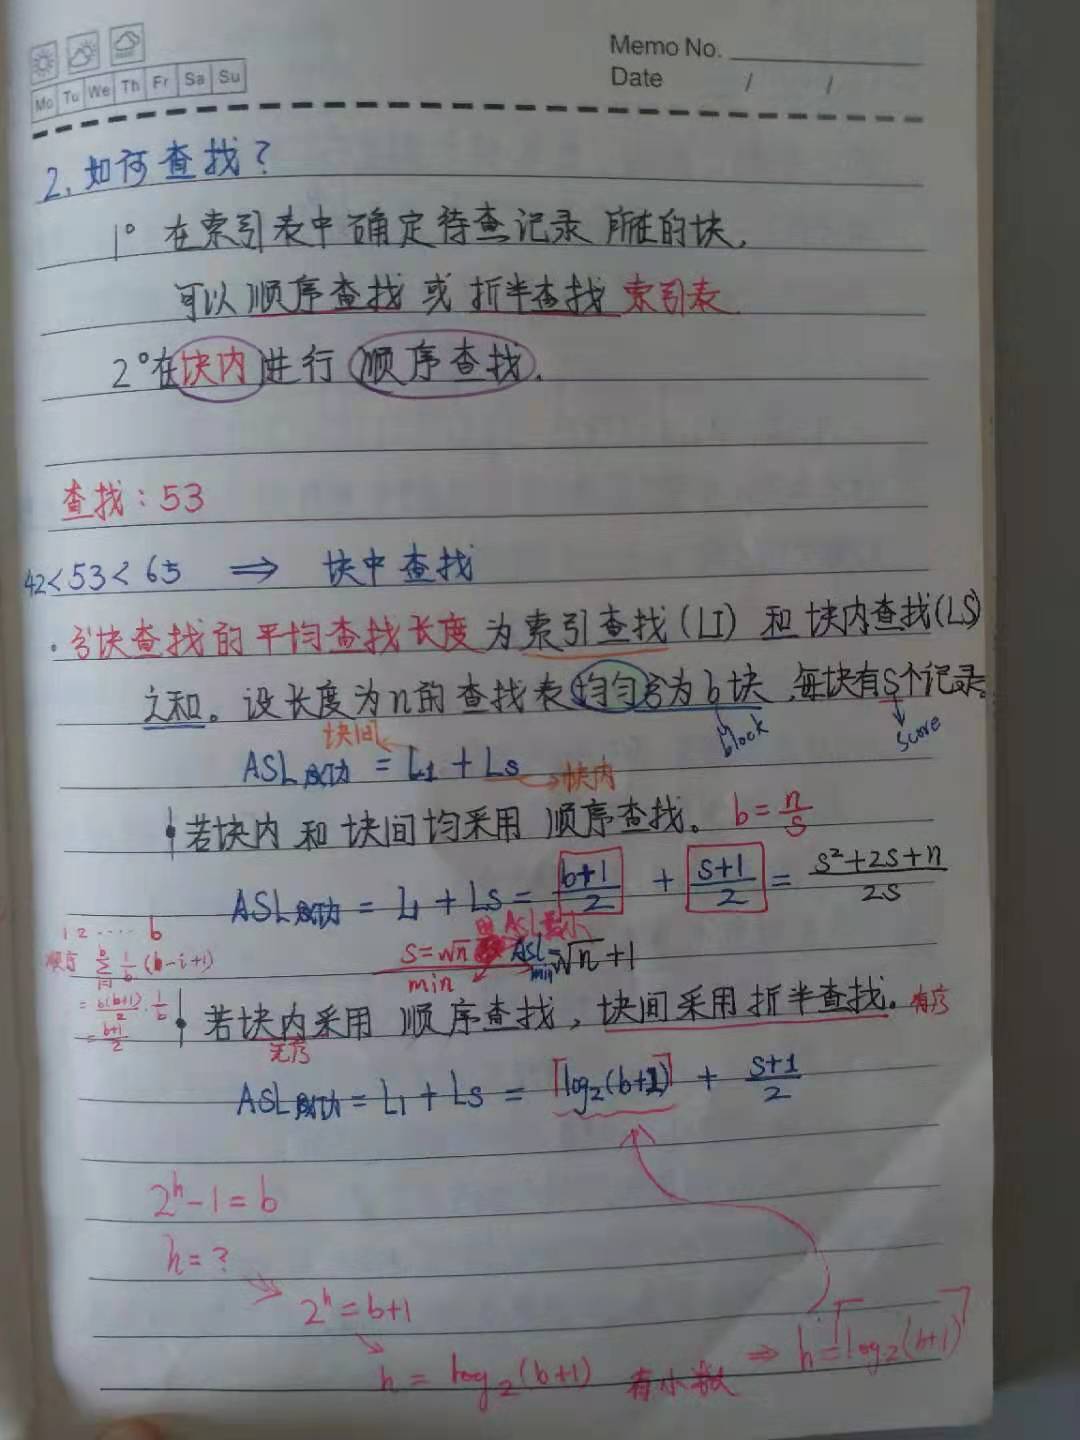 Memo No.
Mo Tu We Th Fr Sa Su
Date / /
2. 如何查找?
1° 在索引表中确定待查记录所在的块,
可以顺序查找或折半查找索引表
2° 在块内进行顺序查找.
查找: 53
42<53<65 ⇒ 块中查找
· 分块查找的平均查找长度为索引查找(LI)和块内查找(LS)
之和。设长度为n的查找表均匀分为b块,每块有s个记录。
块间
block
score
ASL成功 = L1 + Ls
块内
若块内和块间均采用顺序查找。 b=n/s
ASL成功 = L1 + Ls = (b+1)/2 + (s+1)/2 = (s²+2s+n)/2s
1 2 ···· b
ASL最小
s=√n
min
ASLmin=√n+1
顺序 ∑ i=1 b 1/b (b-i+1)
= b(b+1)/2 · 1/b
= (b+1)/2
若块内采用顺序查找,块间采用折半查找. 有序
无序
ASL成功 = L1 + Ls = ⌈log₂(b+1)⌉ + (s+1)/2
2ʰ-1=b
h=?
2ʰ=b+1
h = log₂(b+1) 有小数 ⇒ h=⌈log₂(b+1)⌉